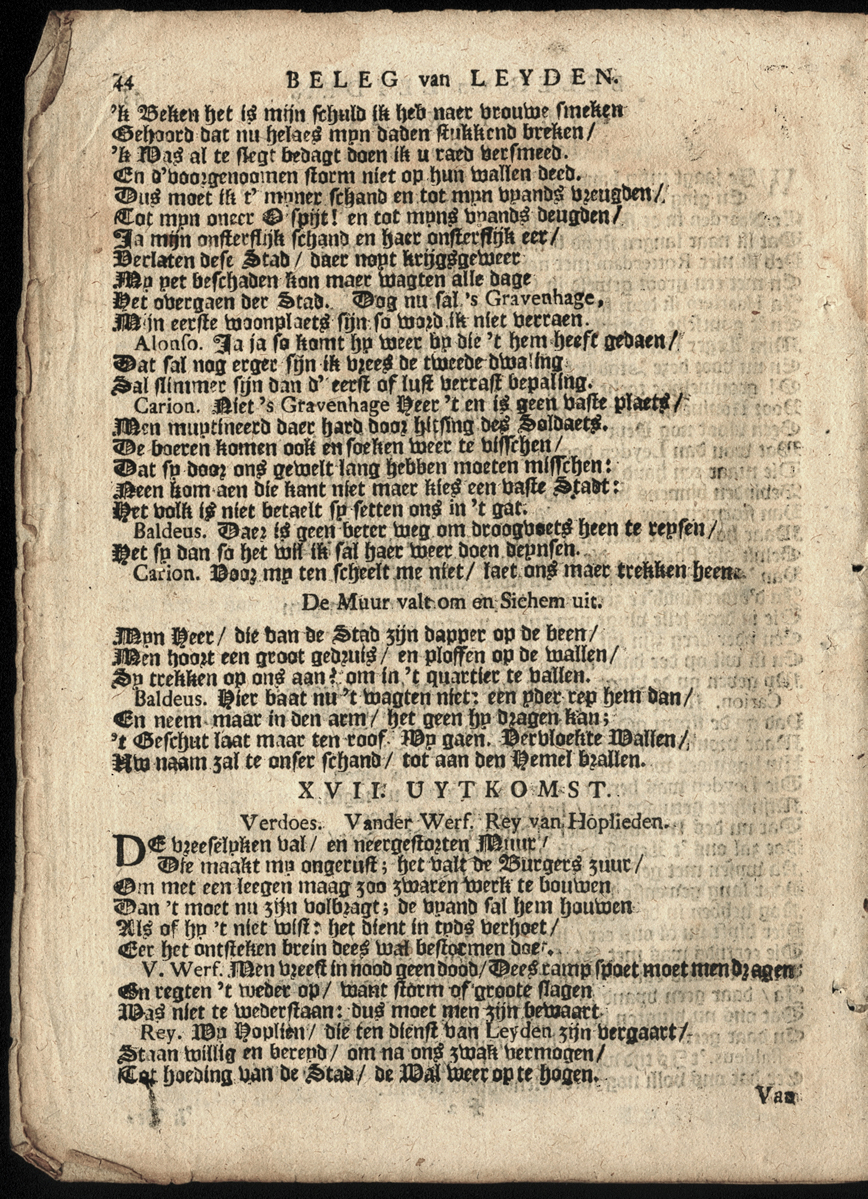 44 BELEG van LEYDEN.
'k Beken het is mijn schuld ik heb naer vrouwe smeken
Gehoord dat nu helaes myn daden stukkend breken/
'k Was al te slegt bedagt doen ik u raed versmeed.
En d'voorgenoomen storm niet op hun wallen deed.
Dus moet ik t' myner schand en tot myn vyands vreugden/
Tot myn oneer O spijt! en tot myns vyands deugden/
Ja mijn onsterflijk schand en haer onsterflijk eer/
Verlaten dese Stad/ daer noyt krijgsgeweer
My yet beschaden kon maer wagten alle dage
Het overgaen der Stad. Dog nu sal 's Gravenhage,
Mijn eerste woonplaets sijn so word ik niet verraen.
Alonso. Ja ja so komt hy weer by die 't hem heeft gedaen/
Dat sal nog erger sijn ik vrees de tweede dwaling
Sal slimmer sijn dan d' eerst of lust verrast bepaling.
Carion. Niet 's Gravenhage Heer 't en is geen vaste plaets/
Men muytineerd daer hard door hitsing des Soldaets.
De boeren komen ook en soeken weer te visschen/
Dat sy door ons gewelt lang hebben moeten misschen:
Neen kom aen die kant niet maer kies een vaste Stadt:
Het volk is niet betaelt sy setten ons in 't gat.
Baldeus. Daer is geen beter weg om droogvoets heen te reysen/
Het sy dan so het wil ik sal haer weer doen deynsen.
Carion. Voor my ten scheelt me niet/ laet ons maer trekken heen.
De Muur valt om en Siehem uit.
Myn Heer/ die van de Stad zijn dapper op de been/
Men hoort een groot gedruis/ en ploffen op de wallen/
Sy trekken op ons aan? om in 't quartier te vallen.
Baldeus. Hier baat nu 't wagten niet: een yder rep hem dan/
En neem maar in den arm/ het geen hy dragen kan;
't Geschut laat maar ten roof. Wy gaen. Vervloekte Wallen/
Uw naam zal te onser schand/ tot aan den Hemel brallen.
XVII. UYTKOMST.
Verdoes. Vander Werf. Rey van Hoplieden.
DE vreeselyken val/ en neergestorten Muur/
Die maakt my ongerust; het valt de Burgers zuur/
Om met een leegen maag zoo zwaren werk te bouwen
Dan 't moet nu zijn volbragt; de vyand sal hem houwen
Als of hy 't niet wist: het dient in tyds verhoet/
Eer het ontsteken brein dees wal bestormen doet.
V. Werf. Men vreest in nood geen dood/ Dees ramp spoet moet men dragen
En regten 't weder op/ want storm of groote slagen
Was niet te wederstaan: dus moet men zijn bewaart
Rey. Wy Hoplien/ die ten dienst van Leyden zijn vergaart/
Staan willig en bereyd/ om na ons zwak vermogen/
Tot hoeding van de Stad/ de Wal weer op te hogen.
Van